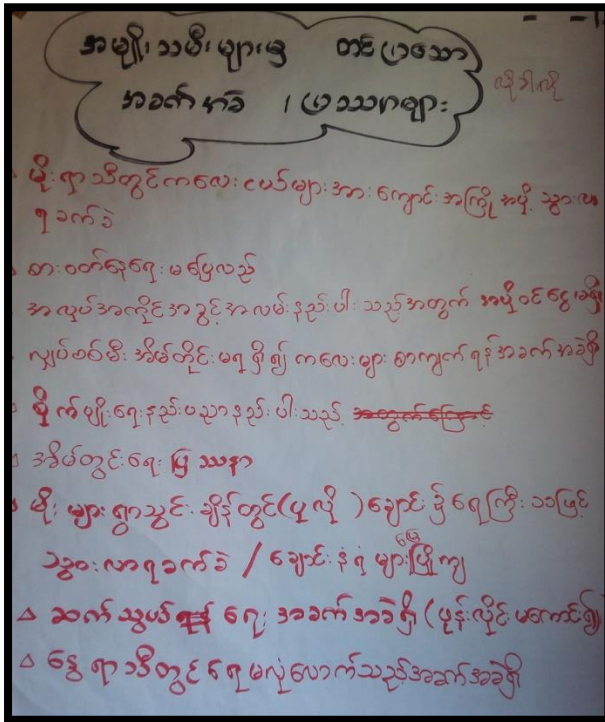 အမျိုးသမီးများမှ တင်ပြသော
အခက်အခဲ / ပြဿနာများ
လိုခါလို
မိုးရာသီတွင်ကလေးငယ်များအားကျောင်းအကြို အပို့ သွားလာ
ရခက်ခဲ
စားဝတ်နေရေးမပြေလည်
အလုပ်အကိုင်အခွင့်အလမ်းနည်းပါးသည့်အတွက် အပိုဝင်ငွေမရှိ
လျှပ်စစ်မီးအိမ်တိုင်းမရရှိ၍ ကလေးများ စာကျက်ရန်အခက်အခဲရှိ
စိုက်ပျိုးရေးနည်းပညာနည်းပါးသည့် အတွက်ကြောင့်
အိမ်တွင်းရေးပြဿနာ
မိုးများရွာသွင်းချိန်တွင်(ပူလို)ချောင်း၌ရေကြီးသဖြင့်
သွားလာရခက်ခဲ / ချောင်းနံရံများမြေပြိုကျ
△ ဆက်သွယ်ရေးအခက်အခဲရှိ (ဖုန်းလိုင်းမကောင်း၍)
△ နွေရာသီတွင်ရေမလုံလောက်သည့်အခက်အခဲရှိ